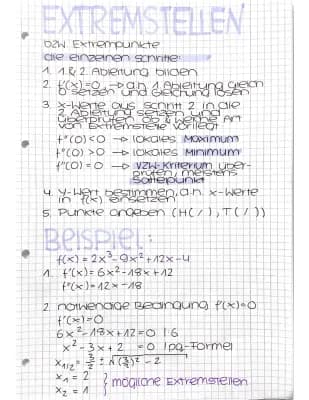 EXTREMSTELLEN
bzw Extrempunkte
die einzelnen schritte:
1. 1.& 2. Ableitung bilden
2. f'(x)=0 → d.h. 1. Ableitung gleich
0 setzen und Gleichung lösen
3. x-Werte aus Schritt 2 in die
2. Ableitung setzen und
überprüfen ob & welche Art
von Extremstelle vorliegt
f"(0) < 0 → lokales Maximum
f"(0) > 0 → lokales Minimum
f"(0) = 0 → VZW-Kriterium über-
prüfen, meistens
Sattelpunkt
4. Y-Wert bestimmen, d.h. x-Werte
in f(x) einsetzen
5. Punkte angeben (H( / ), T( / ))
BEISPIEL:
f(x) = 2x³-9x²+12x-4
1. f'(x) = 6x²-18x+12
f"(x) = 12x-18
2. notwendige Bedingung f'(x)=0
f'(x)=0
6x²-18x+12=0 |:6
x²-3x+2 =0 |pq-Formel
x1/2 = 3/2 ± √(3/2)² - 2
x1 = 2 } mögliche Extremstellen
x2 = 1